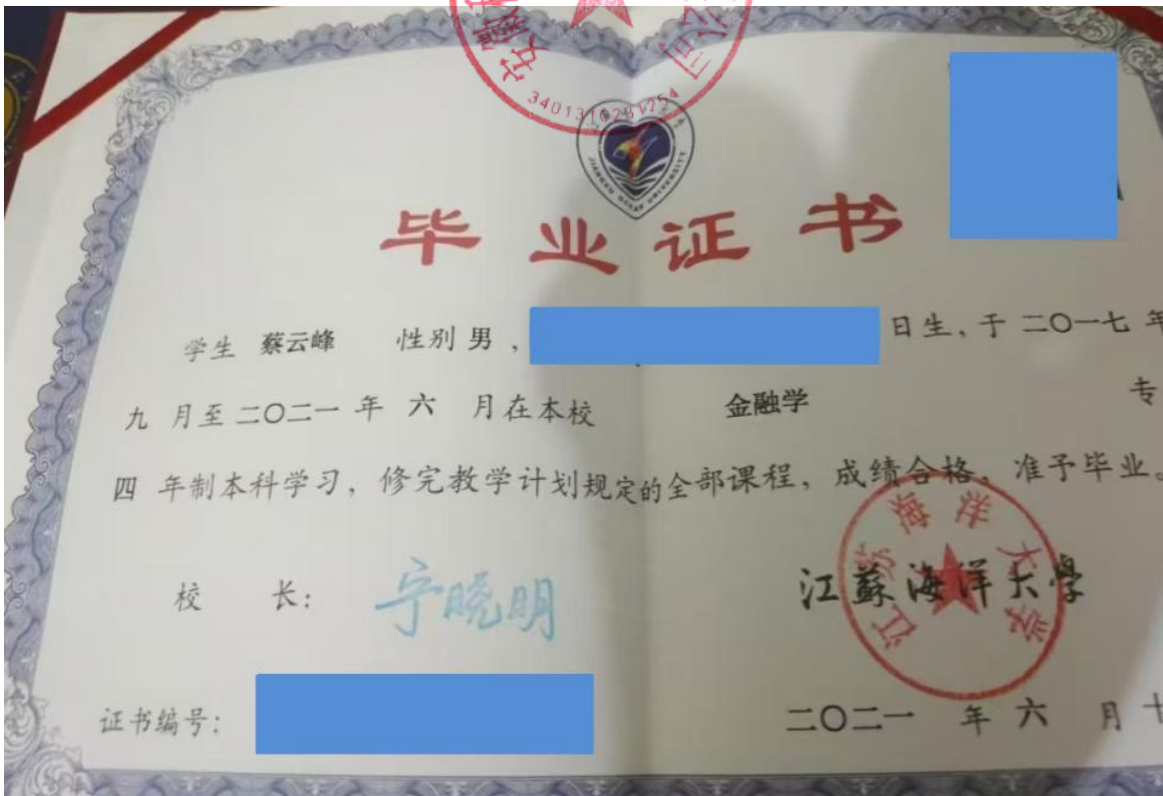 3401310291254
JIANGSU OCEAN UNIVERSITY
毕业证书
学生 蔡云峰 性别 男 , 日生, 于 二〇一七 年
九 月至 二〇二一 年 六 月在本校 金融学 专
四 年制本科学习, 修完教学计划规定的全部课程, 成绩合格, 准予毕业。
校 长: 宁晓明
江蘇海洋大學
江苏海洋大学
证书编号:
二〇二一 年 六 月 十